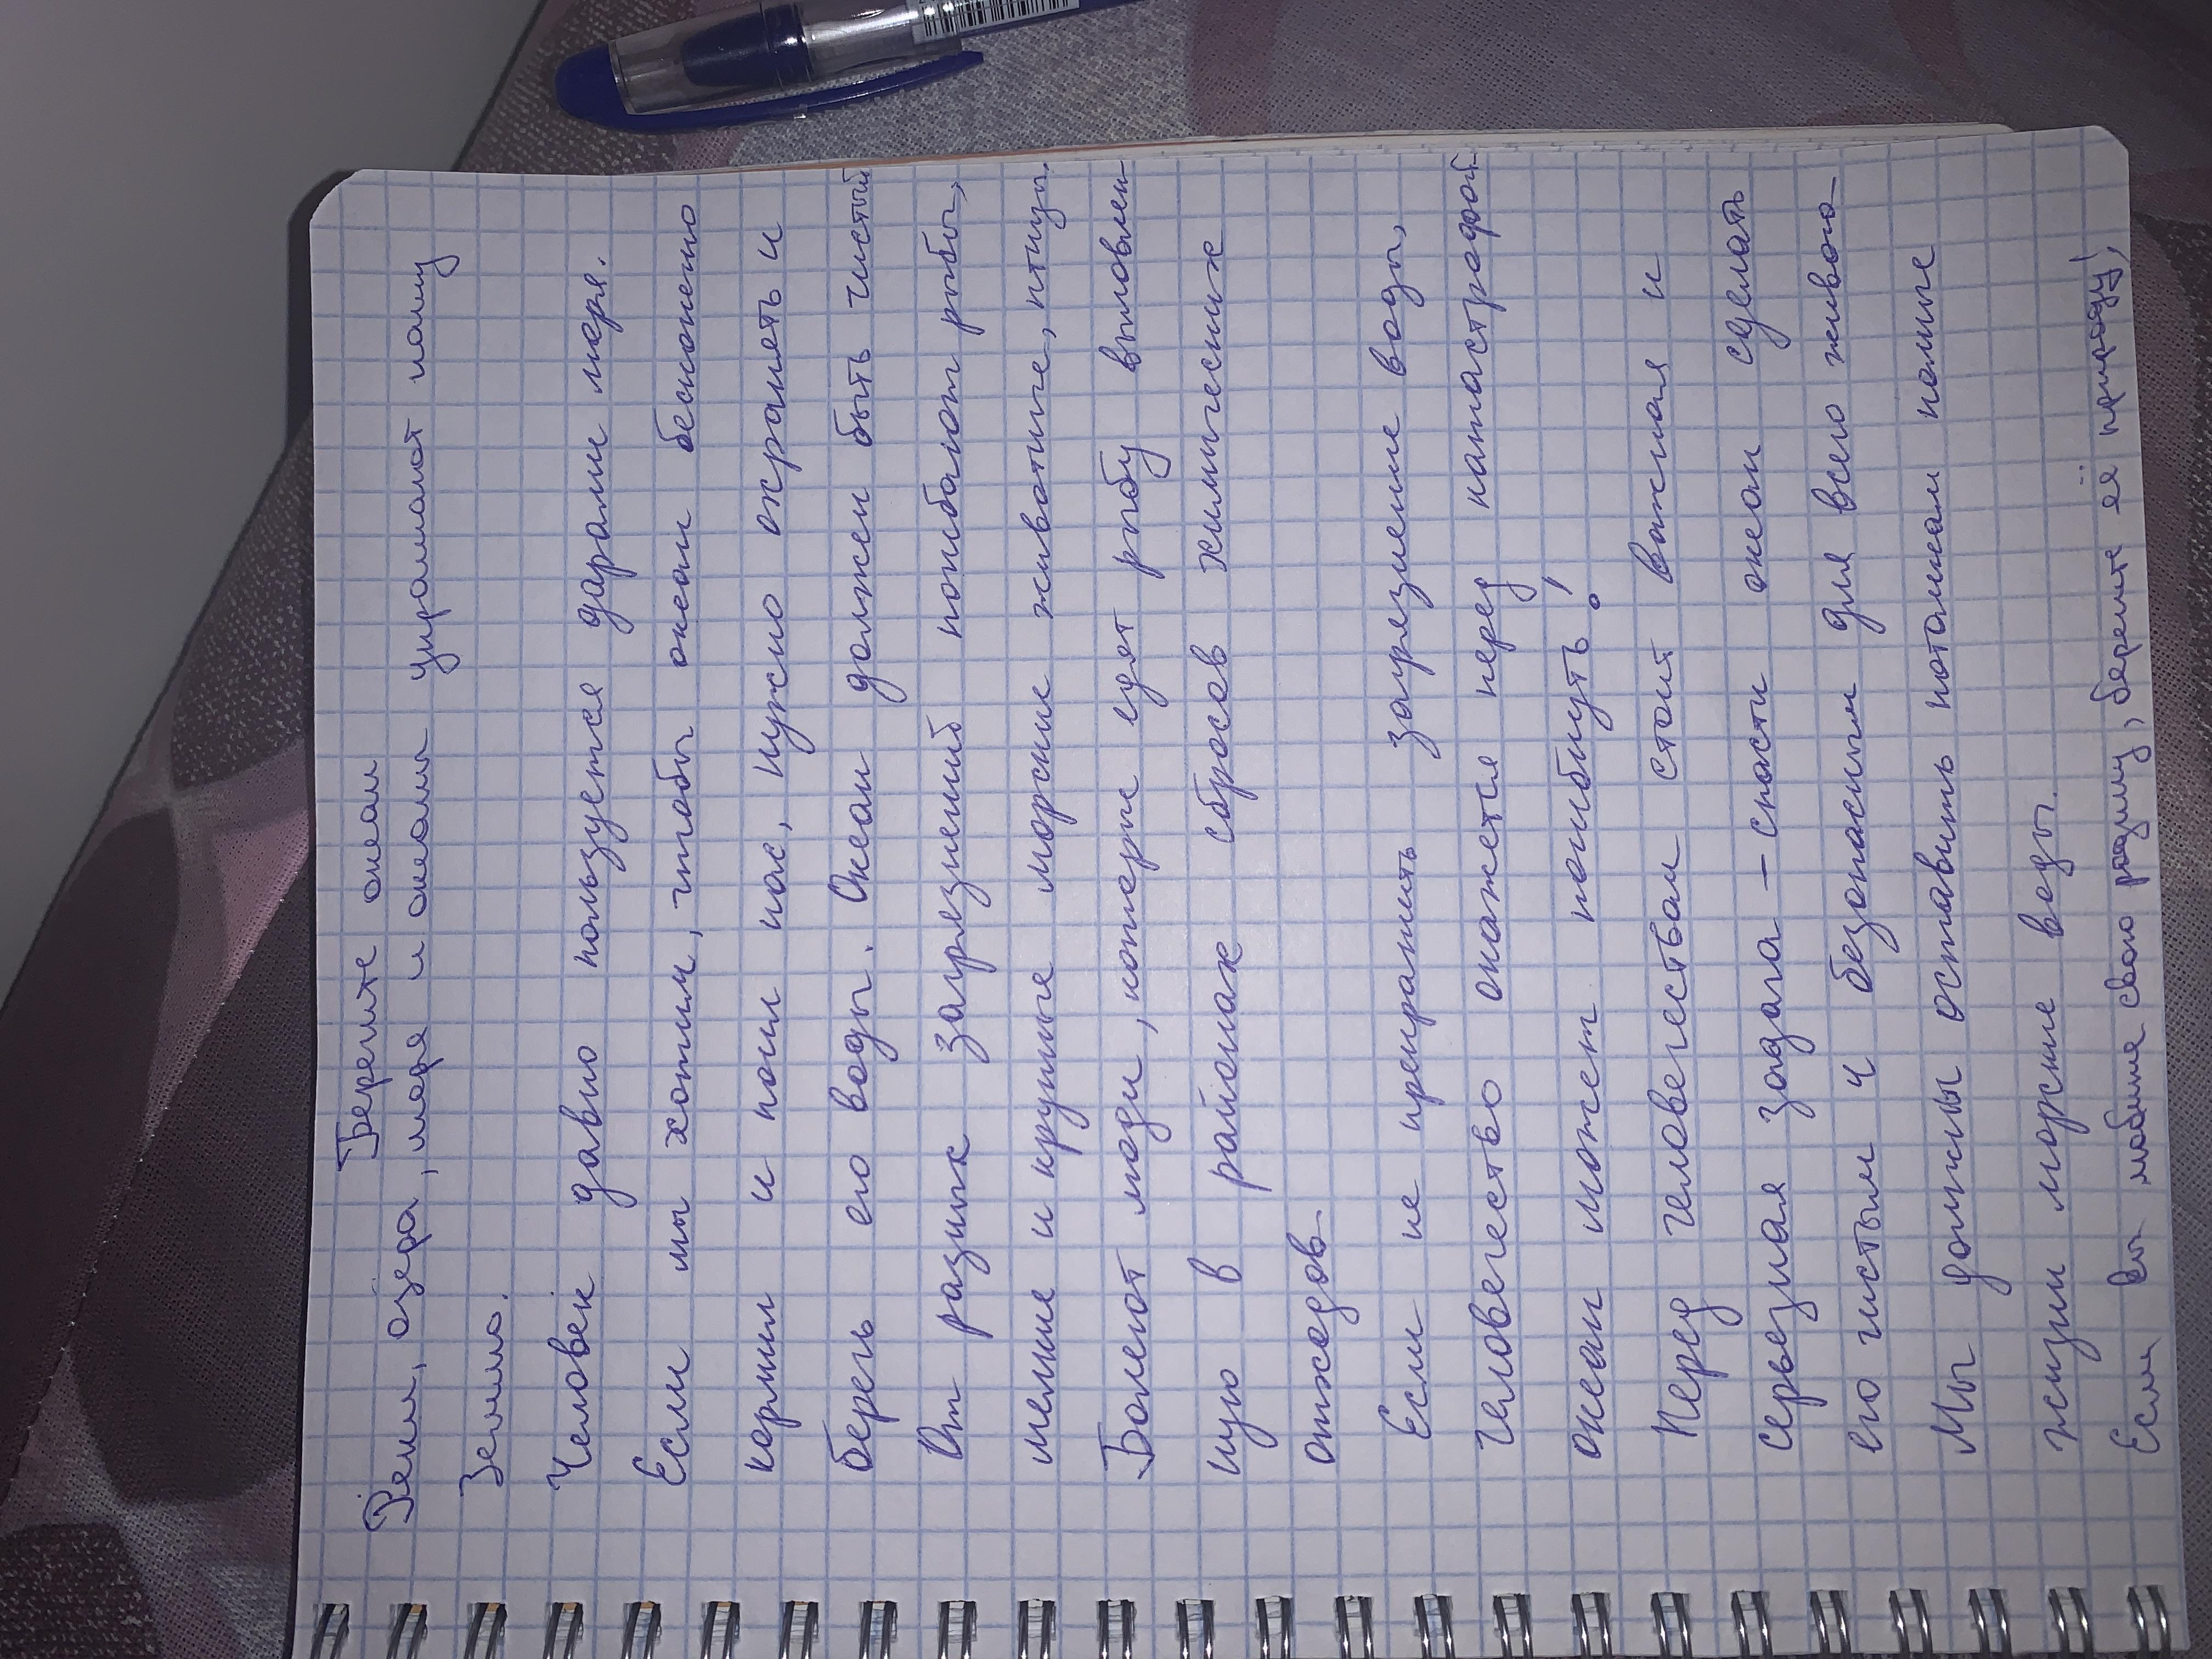 Берегите океан
Реки, озера, моря и океаны украшают нашу
Землю.
Человек давно пользуется дарами моря.
Если мы хотим, чтобы океан бесконечно
кормил и поил нас, нужно охранять и
беречь его воды. Океан должен быть чистый
От разных загрязнений погибают рыбы,
мелкие и крупные морские животные, птицы.
Болеют люди, которые едят рыбу выловлен-
ную в районах сбросов химических
отходов.
Если не прекратить загрязнение воды,
человечество окажется перед катастрофой
океан может погибнуть!
Перед человечеством стоит важная и
серьезная задача – спасти океан сделать
его чистым и безопасным для всего живого
Мы должны оставить потомкам полные
жизни морские воды.
Если вы любите свою родину, берегите её природу!